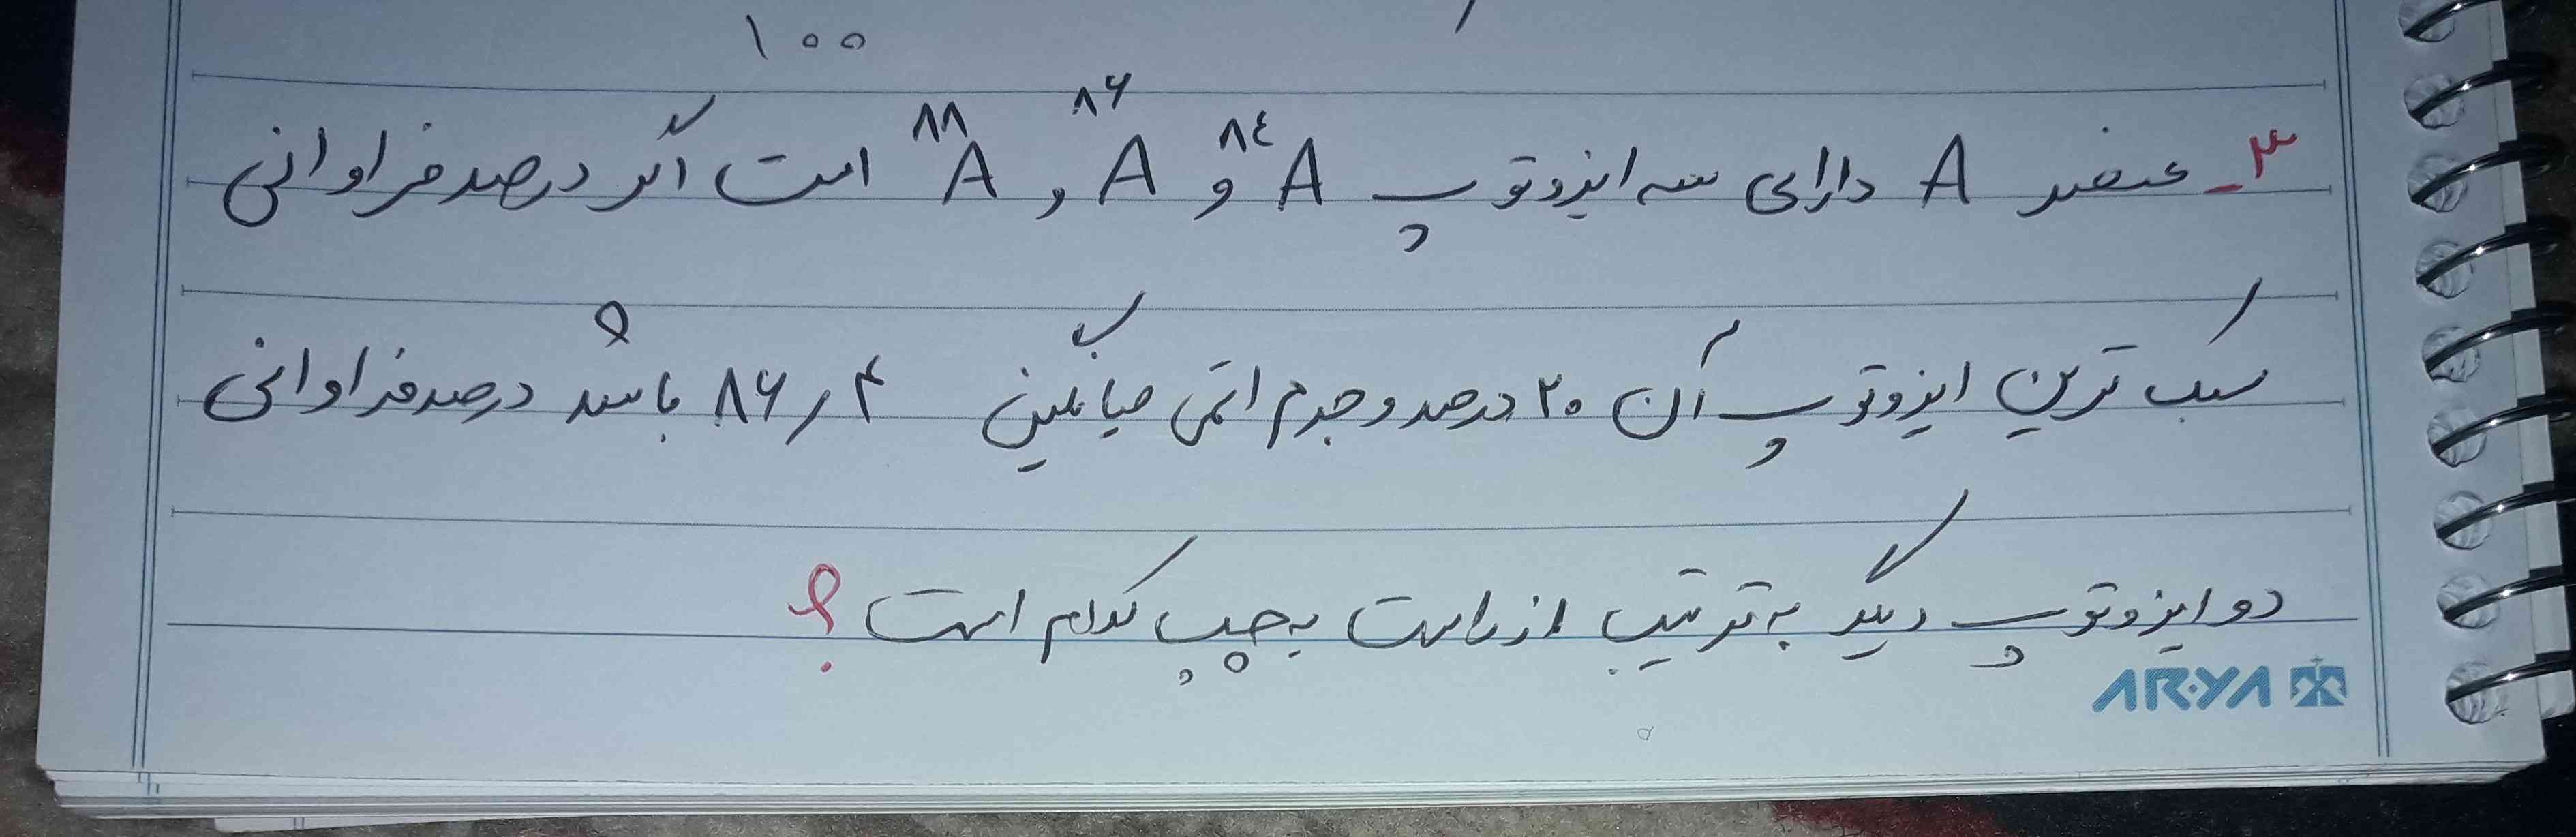 ۱۰۰
۳- عنصر A دارای سه ایزوتوپ ⁸⁴A و ⁸⁶A و ⁸⁸A است اگر درصد فراوانی
سبک ترین ایزوتوپ آن ۲۰ درصد و جرم اتمی میانگین ۸۶٫۴ باشد درصد فراوانی
دو ایزوتوپ دیگر به ترتیب از راست به چپ کدام است؟
ARYA